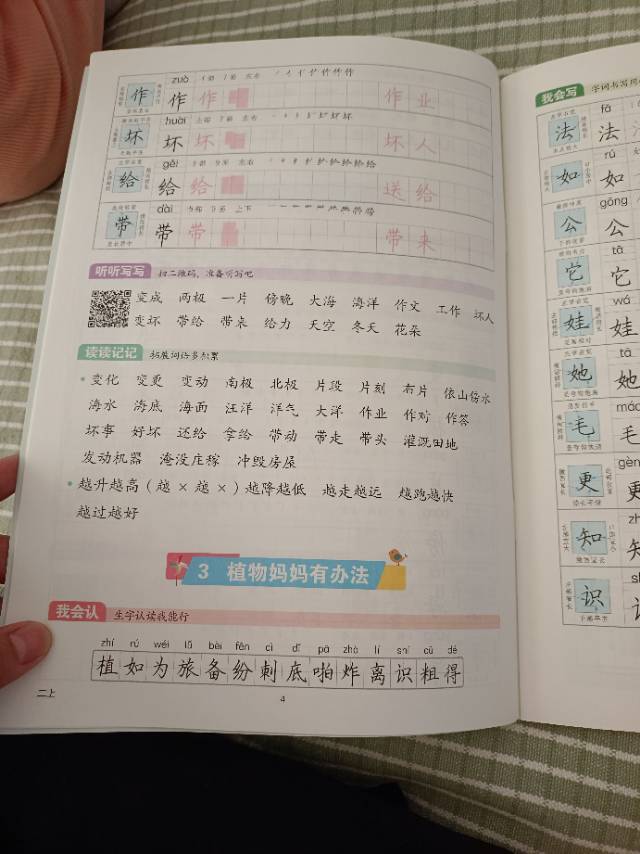 zuò
作 作 作 作业
huài
坏 坏 坏 坏人
gěi
给 给 给 送给
dài
带 带 带 带来
听听写写 扫二维码，准备听写吧
变成 两极 一片 傍晚 大海 海洋 作文 工作 坏人
变坏 带给 带来 给力 天空 冬天 花朵
读读记记 拓展词语多积累
变化 变更 变动 南极 北极 片段 片刻 名片 依山傍水
海水 海底 海面 汪洋 洋气 大洋 作业 作对 作答
坏事 好坏 还给 拿给 带动 带走 带头 灌溉田地
发动机器 淹没庄稼 冲毁房屋
越升越高（越×越×）越降越低 越走越远 越跑越快
越过越好
3 植物妈妈有办法
我会认 生字认读我能行
zhí rú wéi lǚ bèi fēn cì dǐ pā zhà lí shí cū dé
植 如 为 旅 备 纷 刺 底 啪 炸 离 识 粗 得
二上
4
我会写
fǎ
法 法
rú
如 如
gōng
公 公
tā
它 它
wá
娃 娃
tā
她 她
毛 毛
更 更
知 知
识